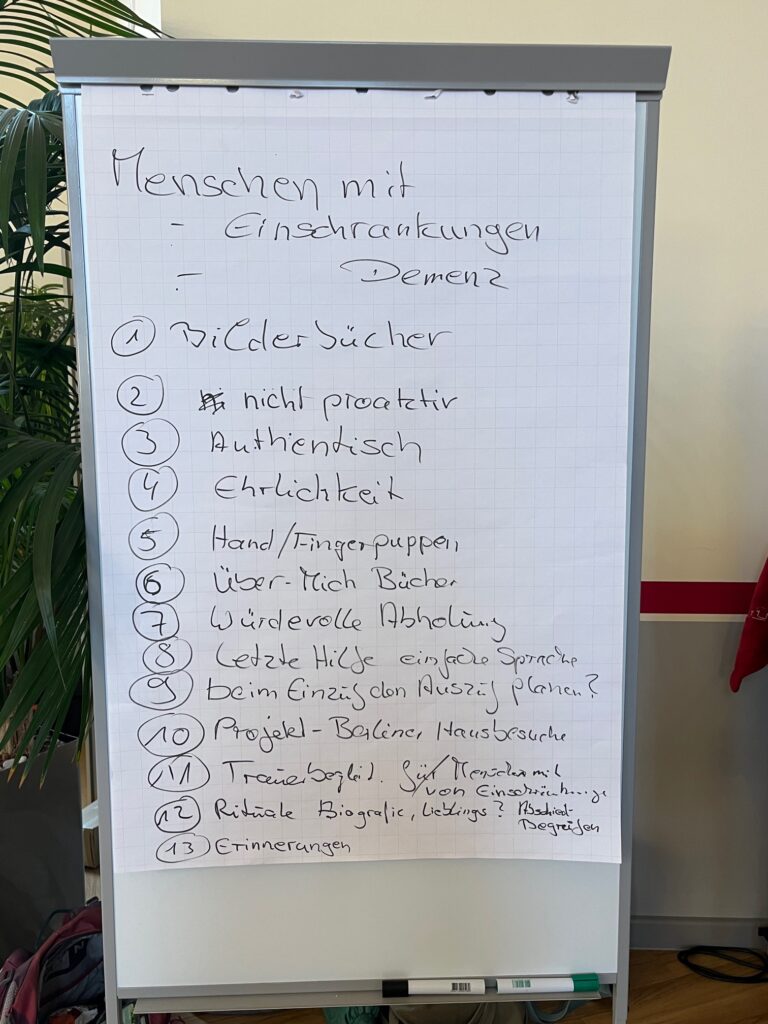 Menschen mit
- Einschränkungen
- Demenz
1 Bilderbücher
2 nicht proaktiv
3 Authentisch
4 Ehrlichkeit
5 Hand/Fingerpuppen
6 Über-Mich Bücher
7 Würdevolle Abholung
8 Letzte Hilfe einfache Sprache
9 beim Einzug den Auszug planen?
10 Projekt - Berliner Hausbesuche
11 Trauerbegleit. für/von Menschen mit Einschränkunge
12 Rituale Biografie, Lieblings? Abschied-
Begreifen
13 Erinnerungen